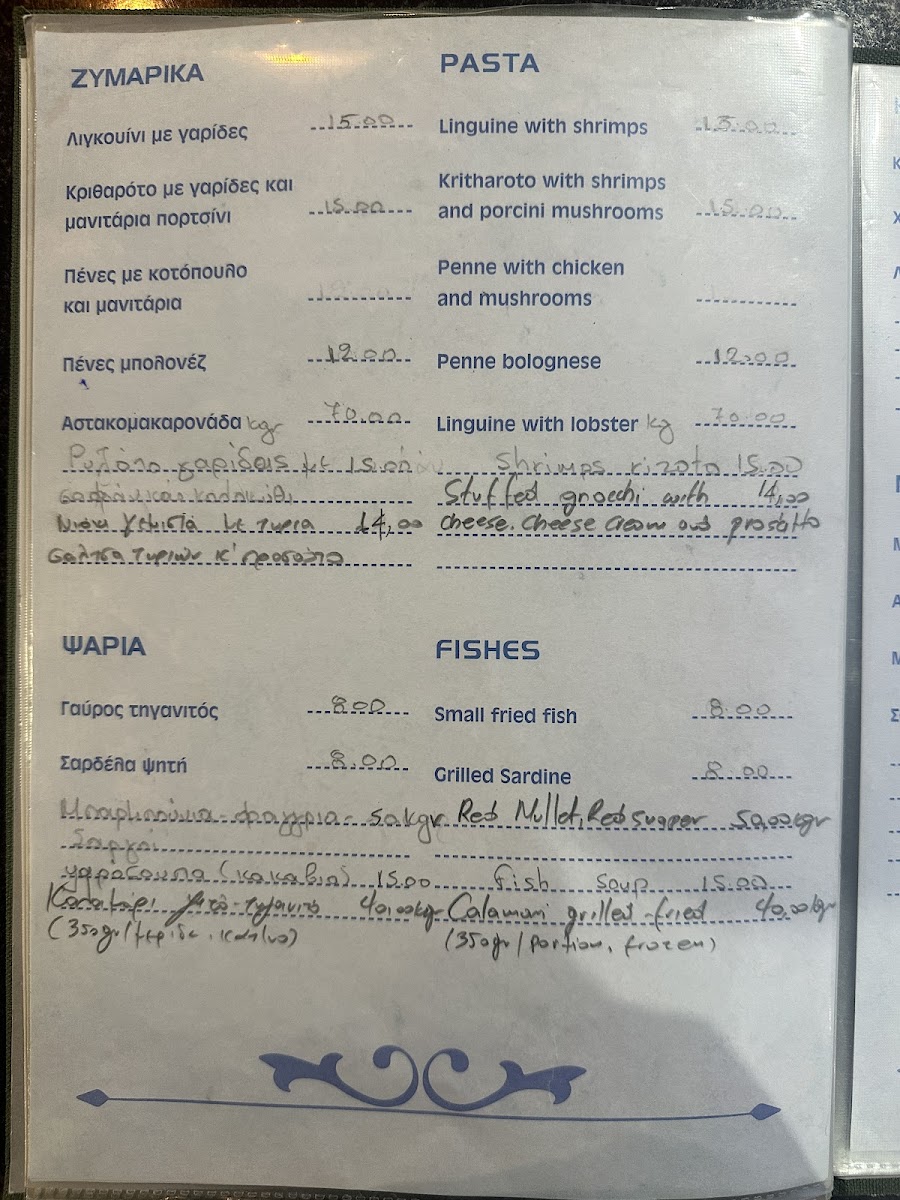 ΖΥΜΑΡΙΚΑ
Λιγκουίνι με γαρίδες 15.00
Κριθαρότο με γαρίδες και
μανιτάρια πορτσίνι 15.00
Πένες με κοτόπουλο
και μανιτάρια
Πένες μπολονέζ 12.00
Αστακομακαρονάδα kgr 70.00
Ριζότο γαρίδες με 15.00
Νιόκι γεμιστά με τυρια 14,00
σαλτσα τυριών κ' προσούτο
PASTA
Linguine with shrimps 15.00
Kritharoto with shrimps
and porcini mushrooms 15.00
Penne with chicken
and mushrooms
Penne bolognese 12.00
Linguine with lobster kg 70.00
Shrimps rizoto 15.00
Stuffed gnocchi with 14,00
cheese. Cheese cream and prosotto
ΨΑΡΙΑ
Γαύρος τηγανιτός 8.00
Σαρδέλα ψητή 8.00
Μπαρμπούνια - φαγγρια - 50kgr
Σαργοί
ψαρόσουπα (κακαβια) 15.00
Καλαμάρι ψητό-τηγανιτό 40,00kgr
(350gr/μεριδα,
FISHES
Small fried fish 8.00
Grilled Sardine 8.00
Red Mullet, Red snaper 50,00kgr
fish soup 15.00
Calamari grilled-fried 40,00kgr
(350gr/portion, frozen)